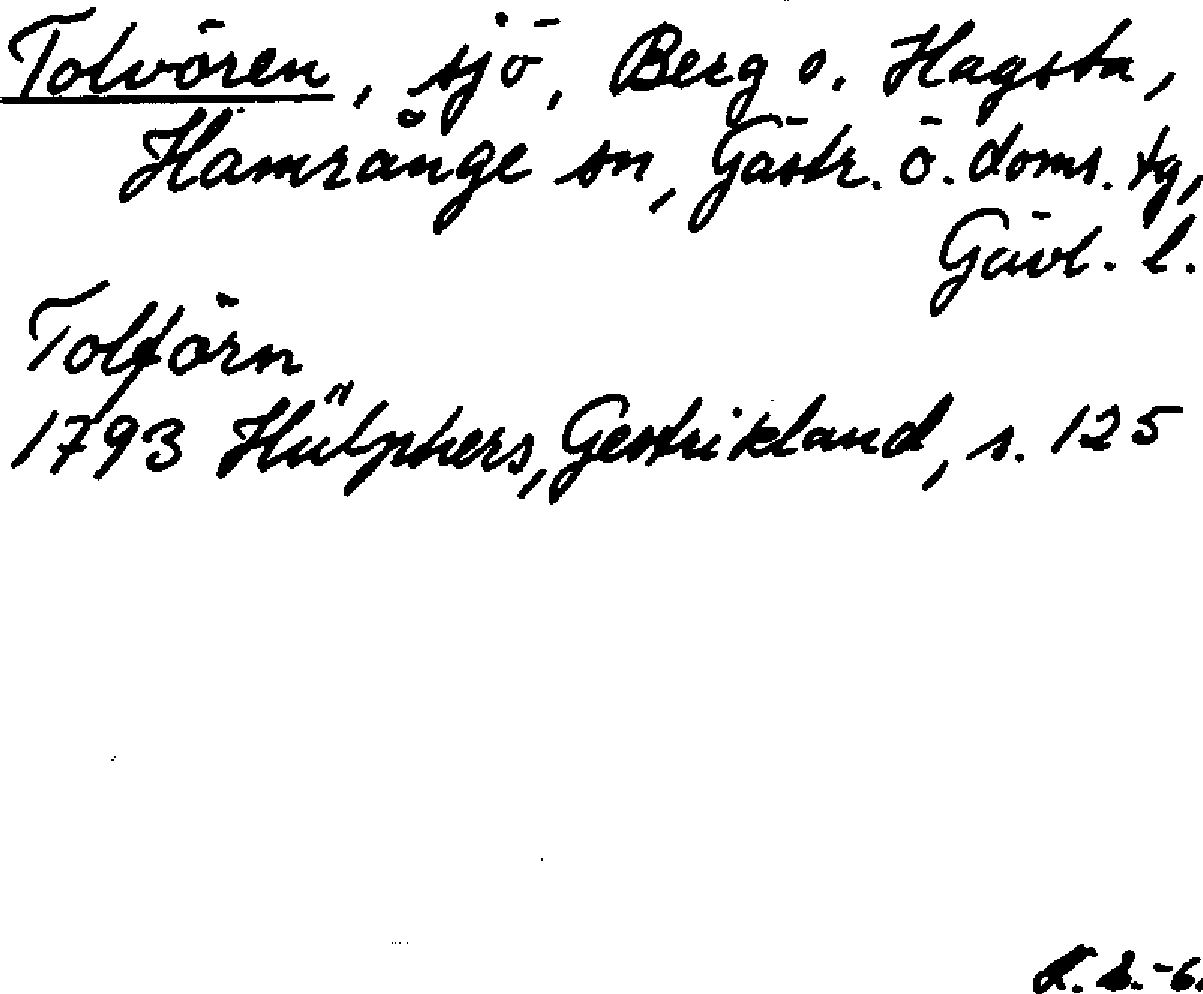 Tolvören, sjö, Berg o. Hagsta,
Hamrånge sn, Gästr. ö. doms. tg,
Gävl. l.
Tolförn
1793 Hülphers, Gestrikland, s. 125